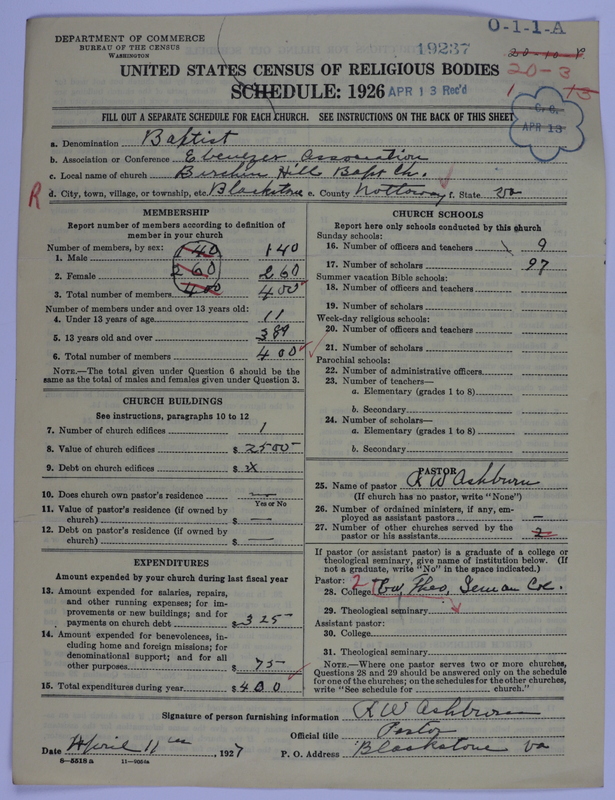 O-1-1-A
DEPARTMENT OF COMMERCE
BUREAU OF THE CENSUS
WASHINGTON
19237
20-3
UNITED STATES CENSUS OF RELIGIOUS BODIES
SCHEDULE: 1926 APR 13 Rec'd
1 13
C. C.
APR 13
FILL OUT A SEPARATE SCHEDULE FOR EACH CHURCH. SEE INSTRUCTIONS ON THE BACK OF THIS SHEET
a. Denomination Baptist
b. Association or Conference Ebenezer Association
c. Local name of church Birchin Hill Bapt Ch.
R d. City, town, village, or township, etc. Blackstone e. County Nottoway f. State Va
MEMBERSHIP
Report number of members according to definition of
member in your church
Number of members, by sex:
1. Male 140 140
2. Female 260 260
3. Total number of members 400 400
Number of members under and over 13 years old:
4. Under 13 years of age 11
5. 13 years old and over 389
6. Total number of members 400
NOTE.—The total given under Question 6 should be the
same as the total of males and females given under Question 3.
CHURCH BUILDINGS
See instructions, paragraphs 10 to 12
7. Number of church edifices 1
8. Value of church edifices $ 2500
9. Debt on church edifices $ X
10. Does church own pastor's residence —
Yes or No
11. Value of pastor's residence (if owned by
church) $ —
12. Debt on pastor's residence (if owned by
church) $ —
EXPENDITURES
Amount expended by church during last fiscal year
13. Amount expended for salaries, repairs,
and other running expenses; for im-
provements or new buildings; and for
payments on church debt $ 325
14. Amount expended for benevolences, in-
cluding home and foreign missions; for
denominational support; and for all
other purposes $ 75
15. Total expenditures during year $ 400
CHURCH SCHOOLS
Report here only schools conducted by this church
Sunday schools:
16. Number of officers and teachers 9
17. Number of scholars 97
Summer vacation Bible schools:
18. Number of officers and teachers
19. Number of scholars
Week-day religious schools:
20. Number of officers and teachers
21. Number of scholars
Parochial schools:
22. Number of administrative officers
23. Number of teachers—
a. Elementary (grades 1 to 8)
b. Secondary
24. Number of scholars—
a. Elementary (grades 1 to 8)
b. Secondary
PASTOR
25. Name of pastor R W Ashburn
(If church has no pastor, write "None")
26. Number of ordained ministers, if any, em-
ployed as assistant pastors —
27. Number of other churches served by the
pastor or his assistants 2
If pastor (or assistant pastor) is a graduate of a college or
theological seminary, give name of institution below. (If
not a graduate, write "No" in the space indicated.)
Pastor: 2
28. College Theo,
29. Theological seminary
Assistant pastor:
30. College
31. Theological seminary
NOTE.—Where one pastor serves two or more churches,
Questions 28 and 29 should be answered only on the schedule
for one of the churches; on the schedules for the other churches,
write "See schedule for church."
Signature of person furnishing information R W Ashburn
Official title Pastor
Date April 11 1927 P. O. Address Blackstone Va
8-5518 a 11-9054a